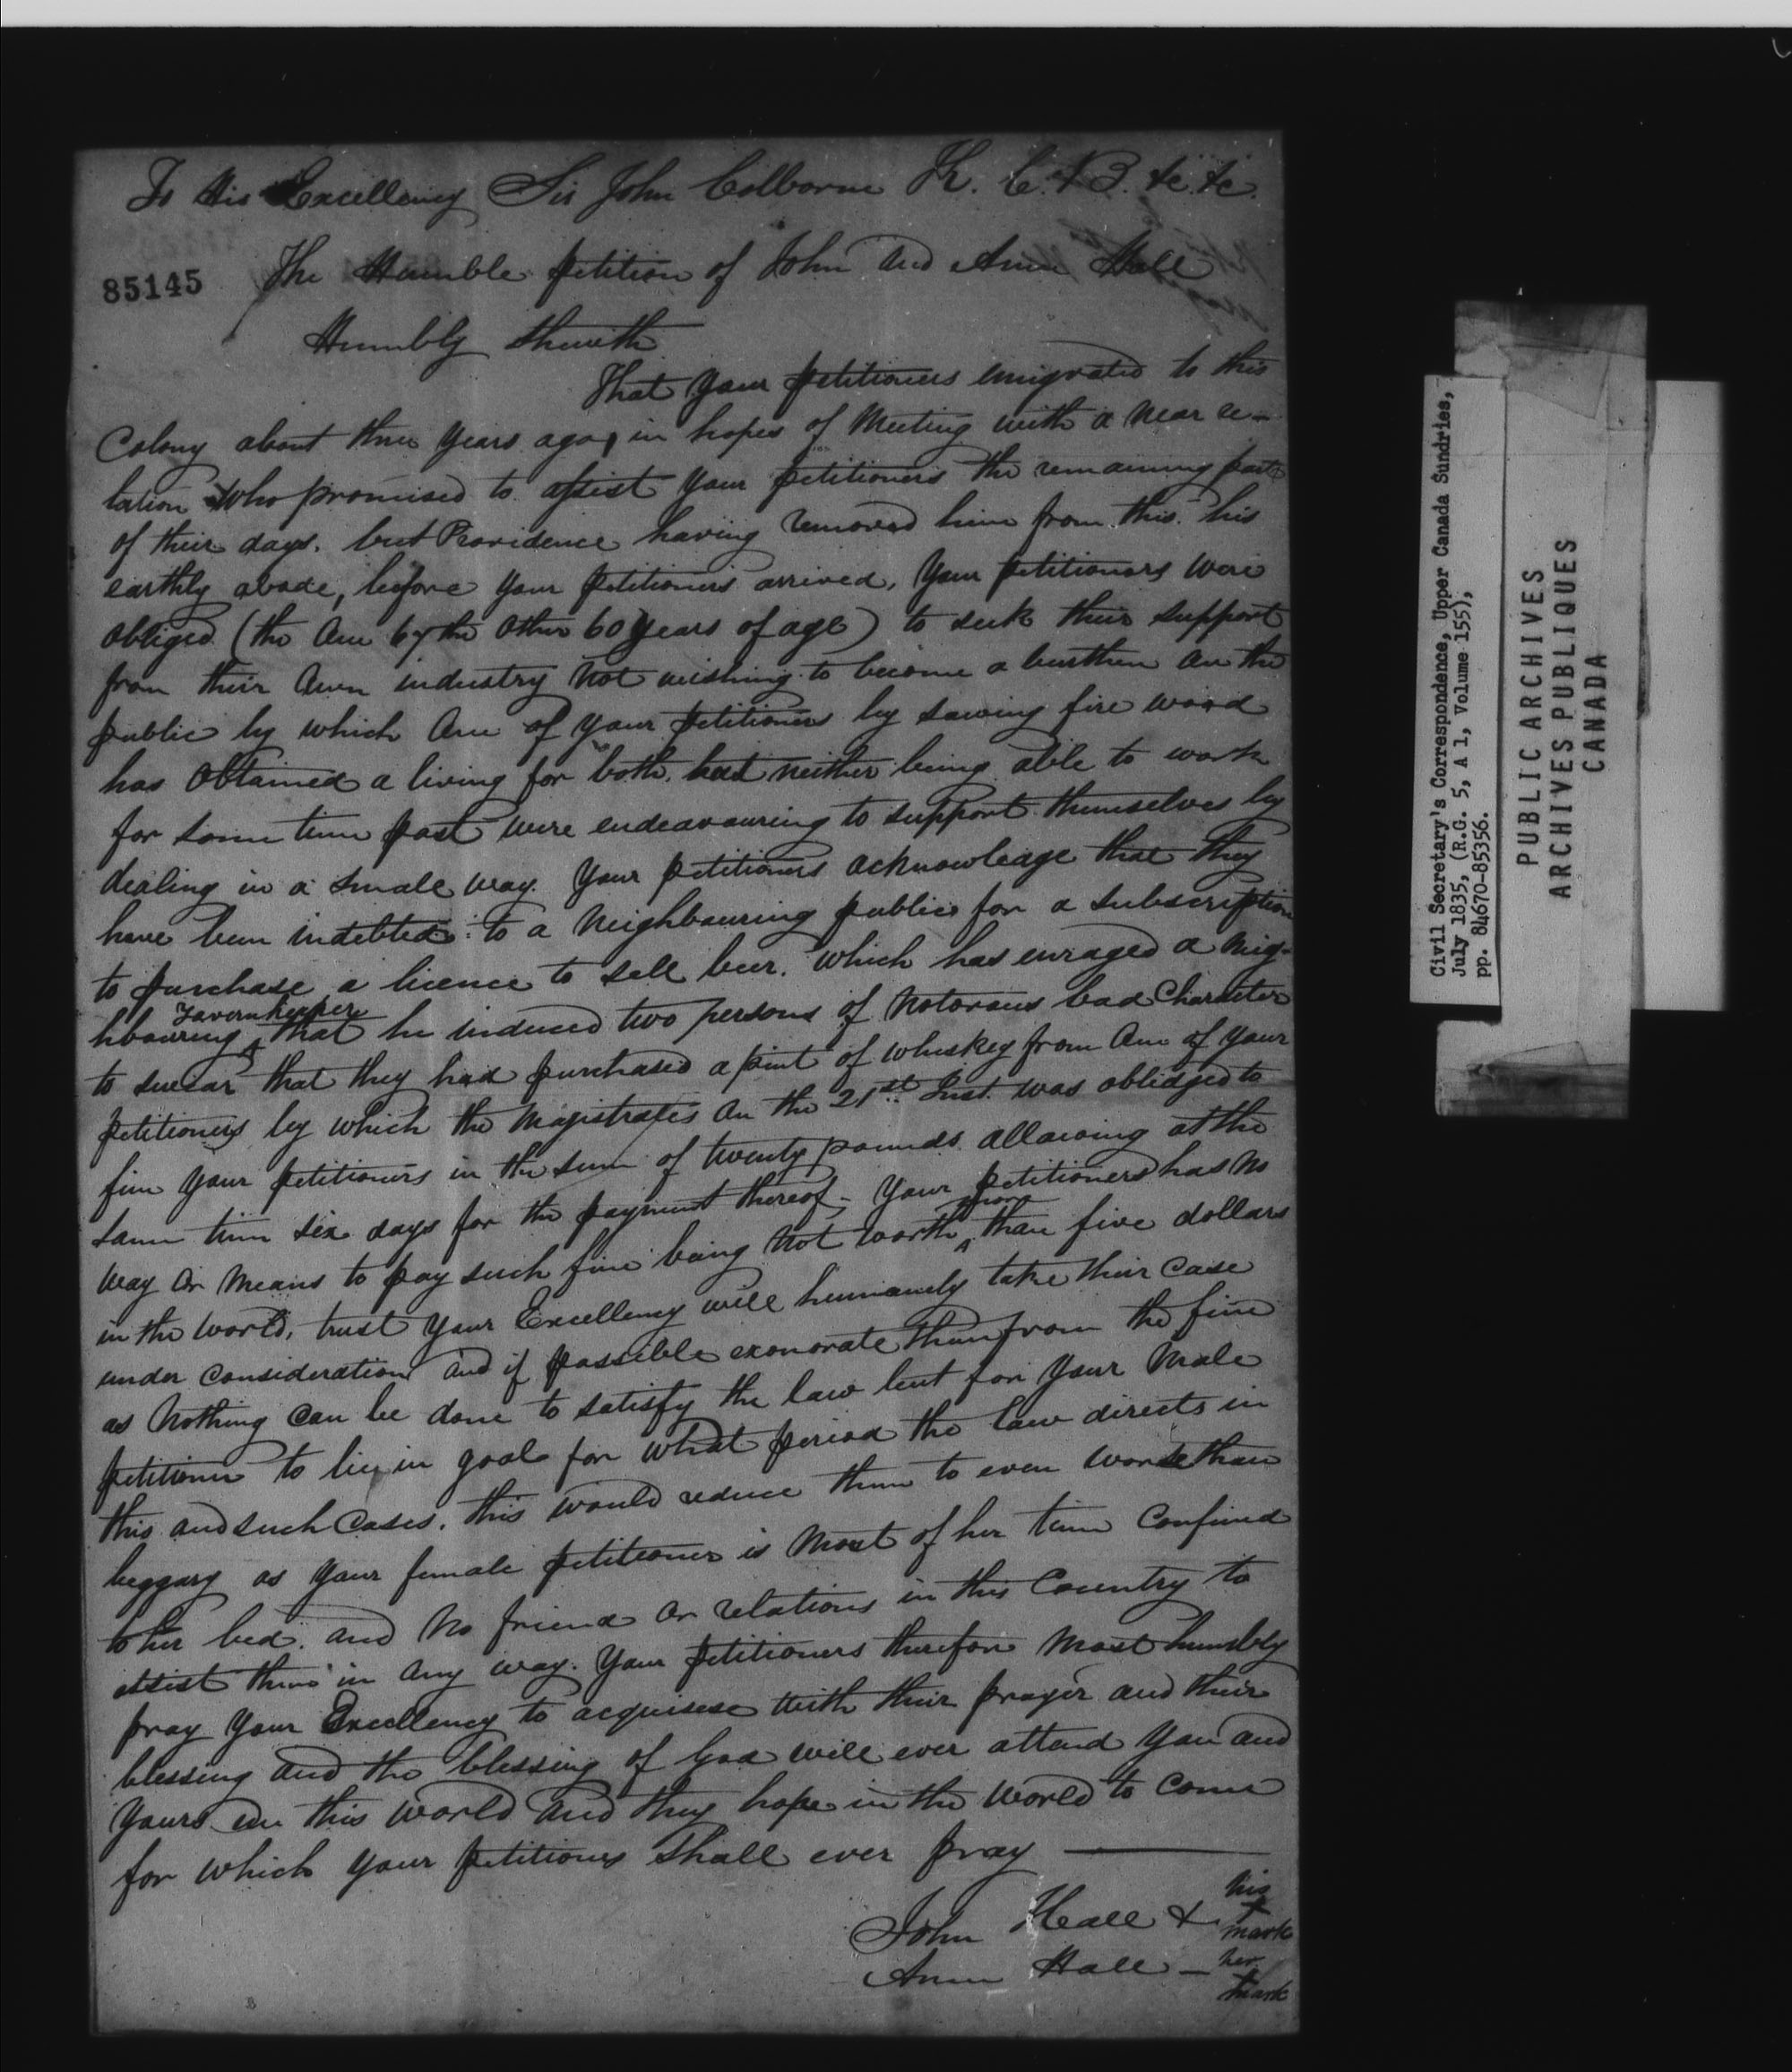 To His Excellency Sir John Colborne K. C. B. &c. &c.
85145
The Humble petition of John and Ann Hall
Humbly Sheweth
That your petitioners emigrated to this
Colony about three years ago, in hopes of Meeting with a near re-
lation who promised to assist your petitioners the remaining part
of their days. but Providence having removed him from this his
earthly abode, before your petitioners arrived, your petitioners were
obliged (the one 67 the other 60 years of age) to seek their support
from their own industry not wishing to become a burthen on the
public by which one of your petitioners by sawing fire wood
has obtained a living for both, but neither being able to work
for some time past were endeavouring to support themselves by
dealing in a small way. your petitioners acknowledge that they
have been indebted to a neighbouring public for a subscription
to purchase a licence to sell beer. which has enraged a neig-
hbouring Tavernkeeper that he induced two persons of notorous bad Character
to swear that they had purchased a pint of whiskey from one of your
petitioners by which the Magistrates on the 21st Inst. was oblidged to
fine your petitioners in the sum of twenty pounds allowing at the
same time six days for the payment thereof. your petitioners has no
way or means to pay such fine being not worth more than five dollars
in the world, trust your Excellency will humanely take their case
under consideration and if possible exonorate them from the fine
as nothing can be done to satisfy the law but for your male
petitioner to lie in goal for what period the law directs in
this and such cases. this would reduce them to even worse than
beggary as your female petitioner is most of her time confined
to her bed. and no friend or relations in this Country to
assist them in any way. your petitioners therefore most humbly
pray your Excellency to acquisese with their prayer and their
blessing and the blessing of God will ever attend you and
yours in this world and they hope in the world to come
for which your petitioners shall ever pray
John Hall + his mark
Ann Hall - her mark
Civil Secretary's Correspondence, Upper Canada Sundries,
July 1835, (R.G. 5, A 1, Volume 155),
pp. 84670-85356.
PUBLIC ARCHIVES
ARCHIVES PUBLIQUES
CANADA